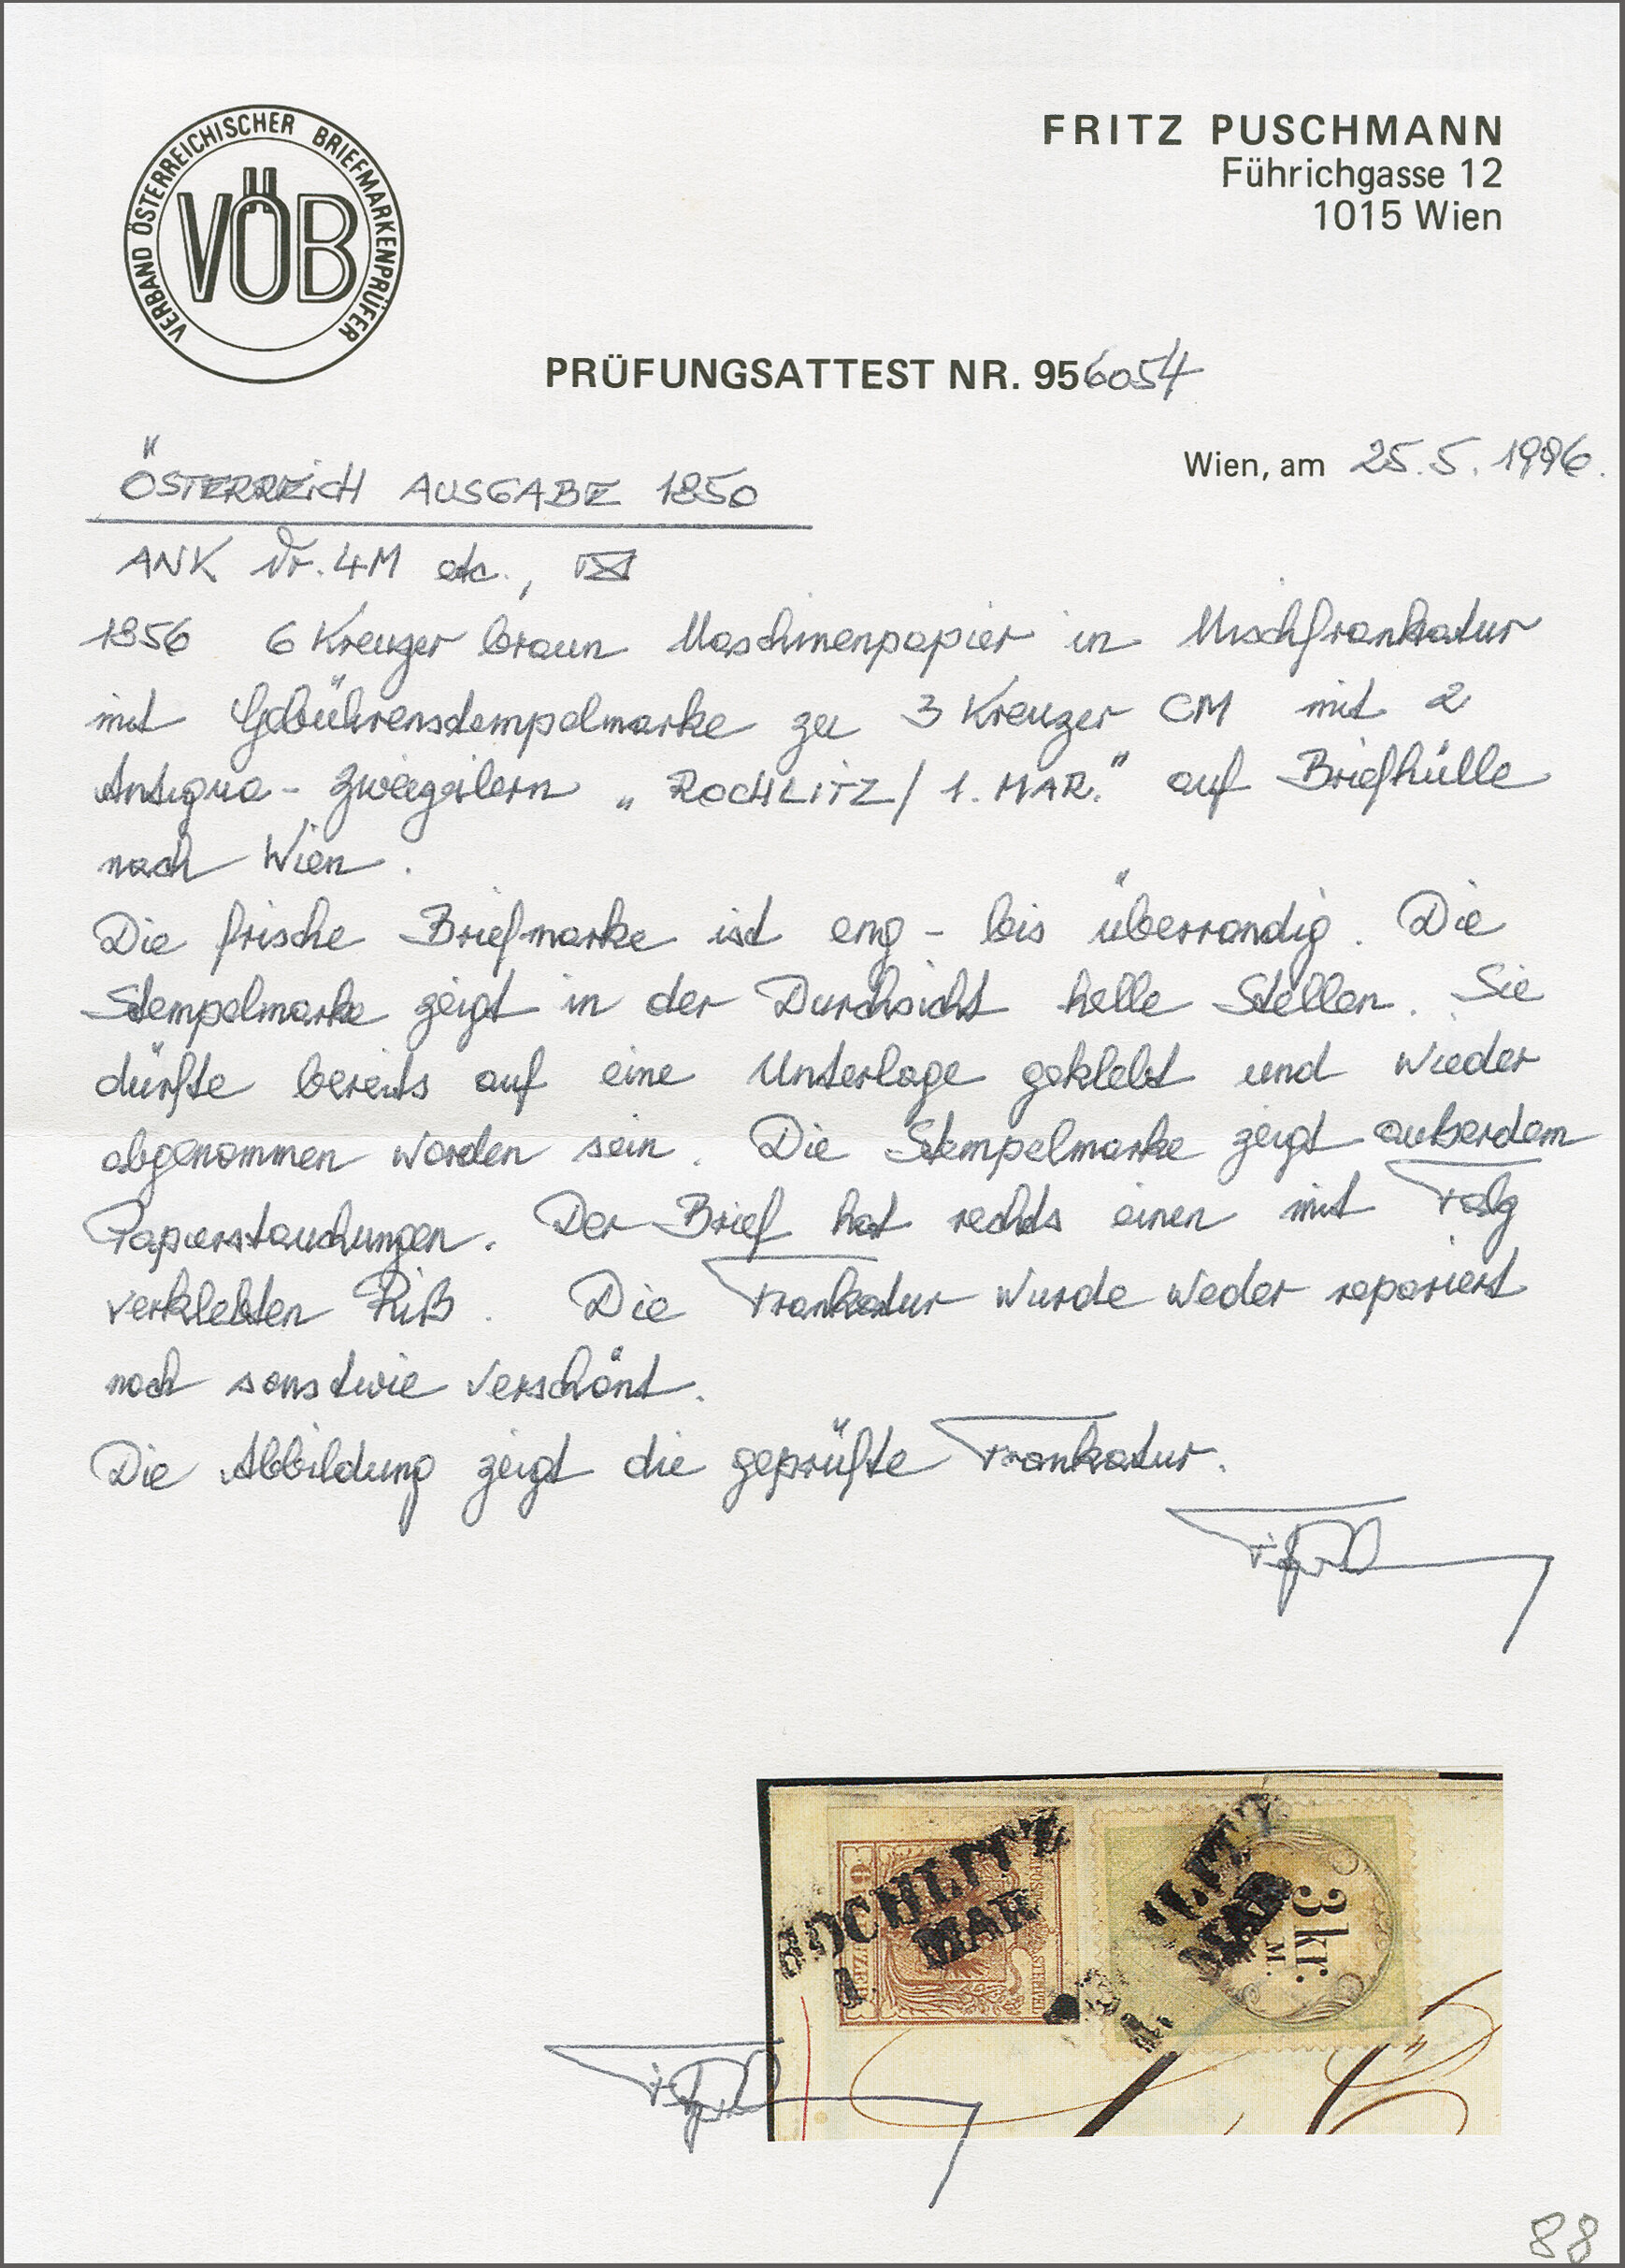 VERBAND ÖSTERREICHISCHER BRIEFMARKENPRÜFER
VÖB
FRITZ PUSCHMANN
Führichgasse 12
1015 Wien
PRÜFUNGSATTEST NR. 956054
Wien, am 25.5.1996.
ÖSTERREICH AUSGABE 1850
ANK Nr. 4M etc.,
1856 6 Kreuzer braun Maschinenpapier in Mischfrankatur
mit Gebührenstempelmarke zu 3 Kreuzer CM mit 2
Antiqua-Zweizeilern „ROCHLITZ/ 1. MAR." auf Briefhülle
nach Wien.
Die frische Briefmarke ist eng- bis überrandig. Die
Stempelmarke zeigt in der Durchsicht helle Stellen. Sie
dürfte bereits auf eine Unterlage geklebt und wieder
abgenommen worden sein. Die Stempelmarke zeigt außerdem
Papierstauchungen. Der Brief hat rechts einen mit Falz
verklebten Riß. Die Frankatur wurde weder repariert
noch sonstwie verschönt.
Die Abbildung zeigt die geprüfte Frankatur.
ROCHLITZ
1. MAR
LITZ
1. MAR
3 kr.
M.
88